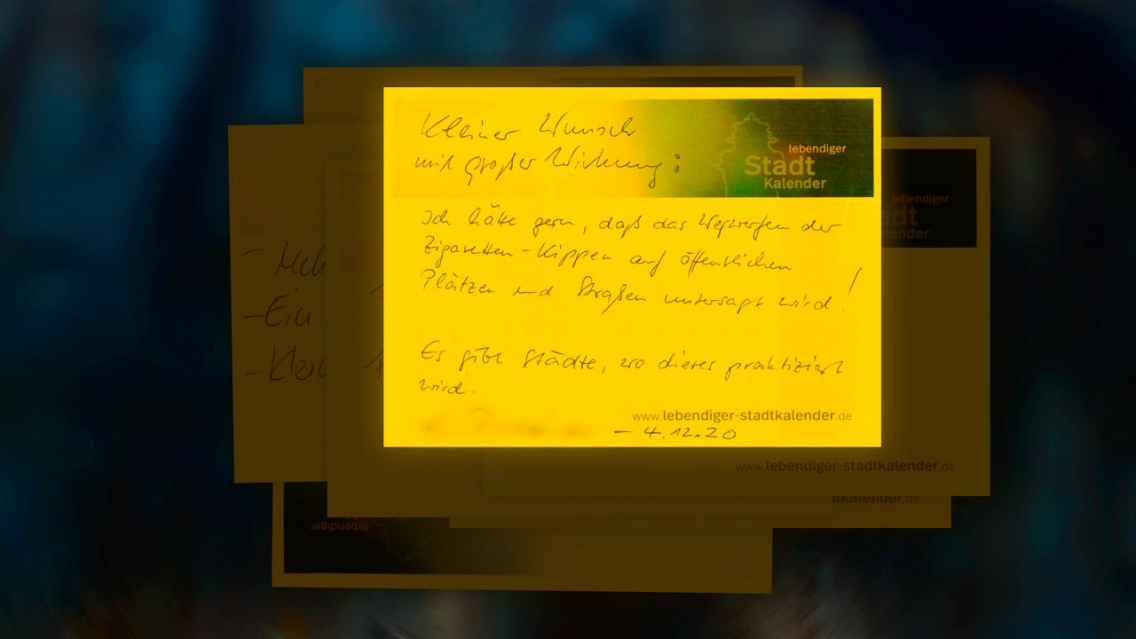 Kleiner Wunsch
mit großer Wirkung:
lebendiger
Stadt
Kalender
Ich hätte gern, daß das Wegwerfen der
Zigaretten-Kippen auf öffentlichen
Plätzen und Straßen untersagt wird!
Es gibt Städte, wo dieses praktiziert
wird.
www.lebendiger-stadtkalender.de
- 4.12.20
lebendiger
adt
alender
- Meh
- Ein
- Klei
www.lebendiger-stadtkalender.de
tkalender.de
lebendiger